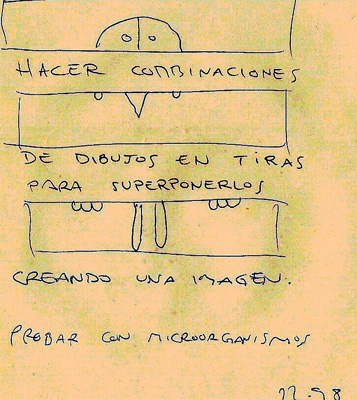 HACER COMBINACIONES
DE DIBUJOS EN TIRAS
PARA SUPERPONERLOS
CREANDO UNA IMAGEN.
PROBAR CON MICROORGANISMOS